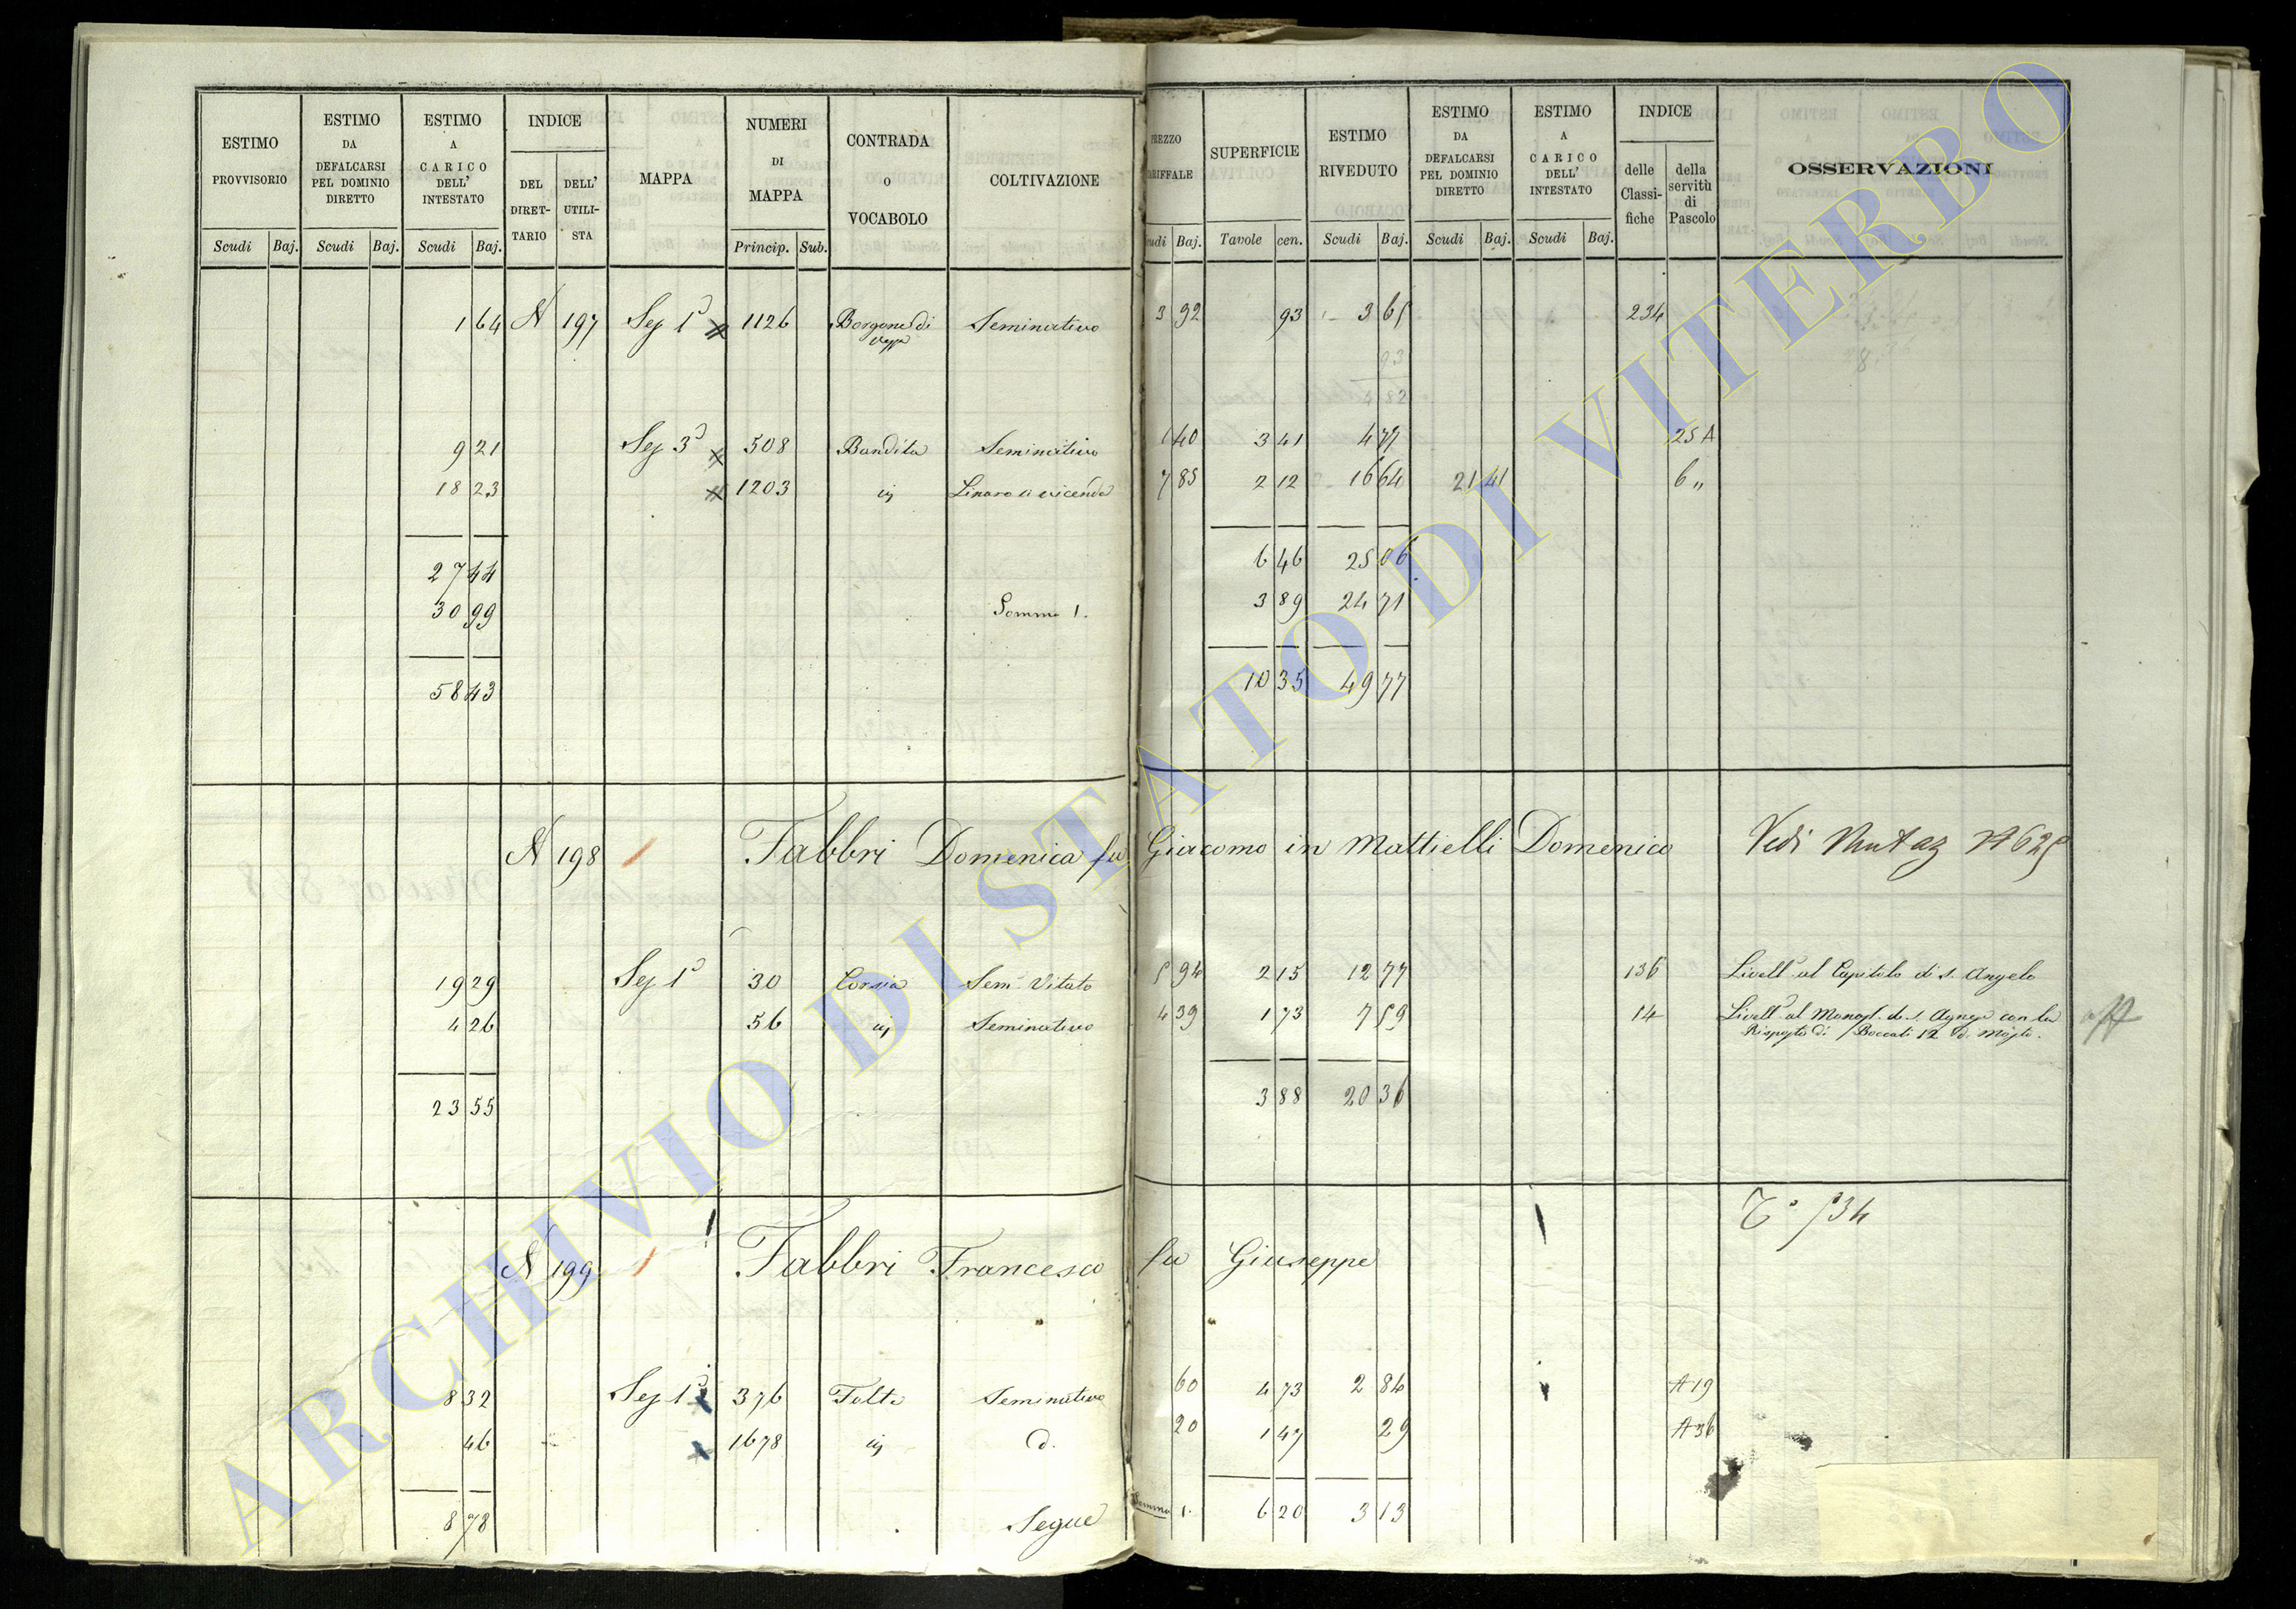 ESTIMO PROVVISORIO
ESTIMO DA DEFALCARSI PEL DOMINIO DIRETTO
ESTIMO A CARICO DELL' INTESTATO
INDICE
DEL DIRET-TARIO
DELL' UTILI-STA
MAPPA
NUMERI DI MAPPA
CONTRADA O VOCABOLO
COLTIVAZIONE
SUPERFICIE
ESTIMO RIVEDUTO
ESTIMO DA DEFALCARSI PEL DOMINIO DIRETTO
ESTIMO A CARICO DELL' INTESTATO
INDICE
delle Classi-fiche
della servitù di Pascolo
OSSERVAZIONI
Scudi Baj. Scudi Baj. Scudi Baj. Princip. Sub. Baj. Tavole cen. Scudi Baj. Scudi Baj. Scudi Baj.
1 64 N 197 Sez 1ª 1126 Seminativo 3 92 93 3 65 234
9 21 Sez 3ª 508 Bandita Seminativo 1 40 3 41 4 77 25 A
18 23 1203 Linaro a vicenda 7 85 2 12 16 64 21 41 6 „
27 44 6 46 25 06
30 99 Somma 1. 3 89 24 71
58 43 10 35 49 77
N 198 Fabbri Domenica fu Giacomo in Mattielli Domenico Vedi Mutaz N 625
19 29 Sez 1ª 30 Corsia Sem. Vitato 5 94 2 15 12 77 136 Livell. al Capitolo di S. Angelo
4 26 56 Seminativo 4 39 1 73 7 59 14 Livell. al Monast. di S. Agnese con la
Risposta di Boccali 12 di Mosto.
23 55 3 88 20 36
Tº 534
N 199 Fabbri Francesco fu Giuseppe
8 32 Sez 1ª 376 Seminativo 60 4 73 2 84 A 19
46 1678 d. 20 1 47 29 A 36
8 78 Segue Somma 1. 6 20 3 13
ARCHIVIO DI STATO DI VITERBO